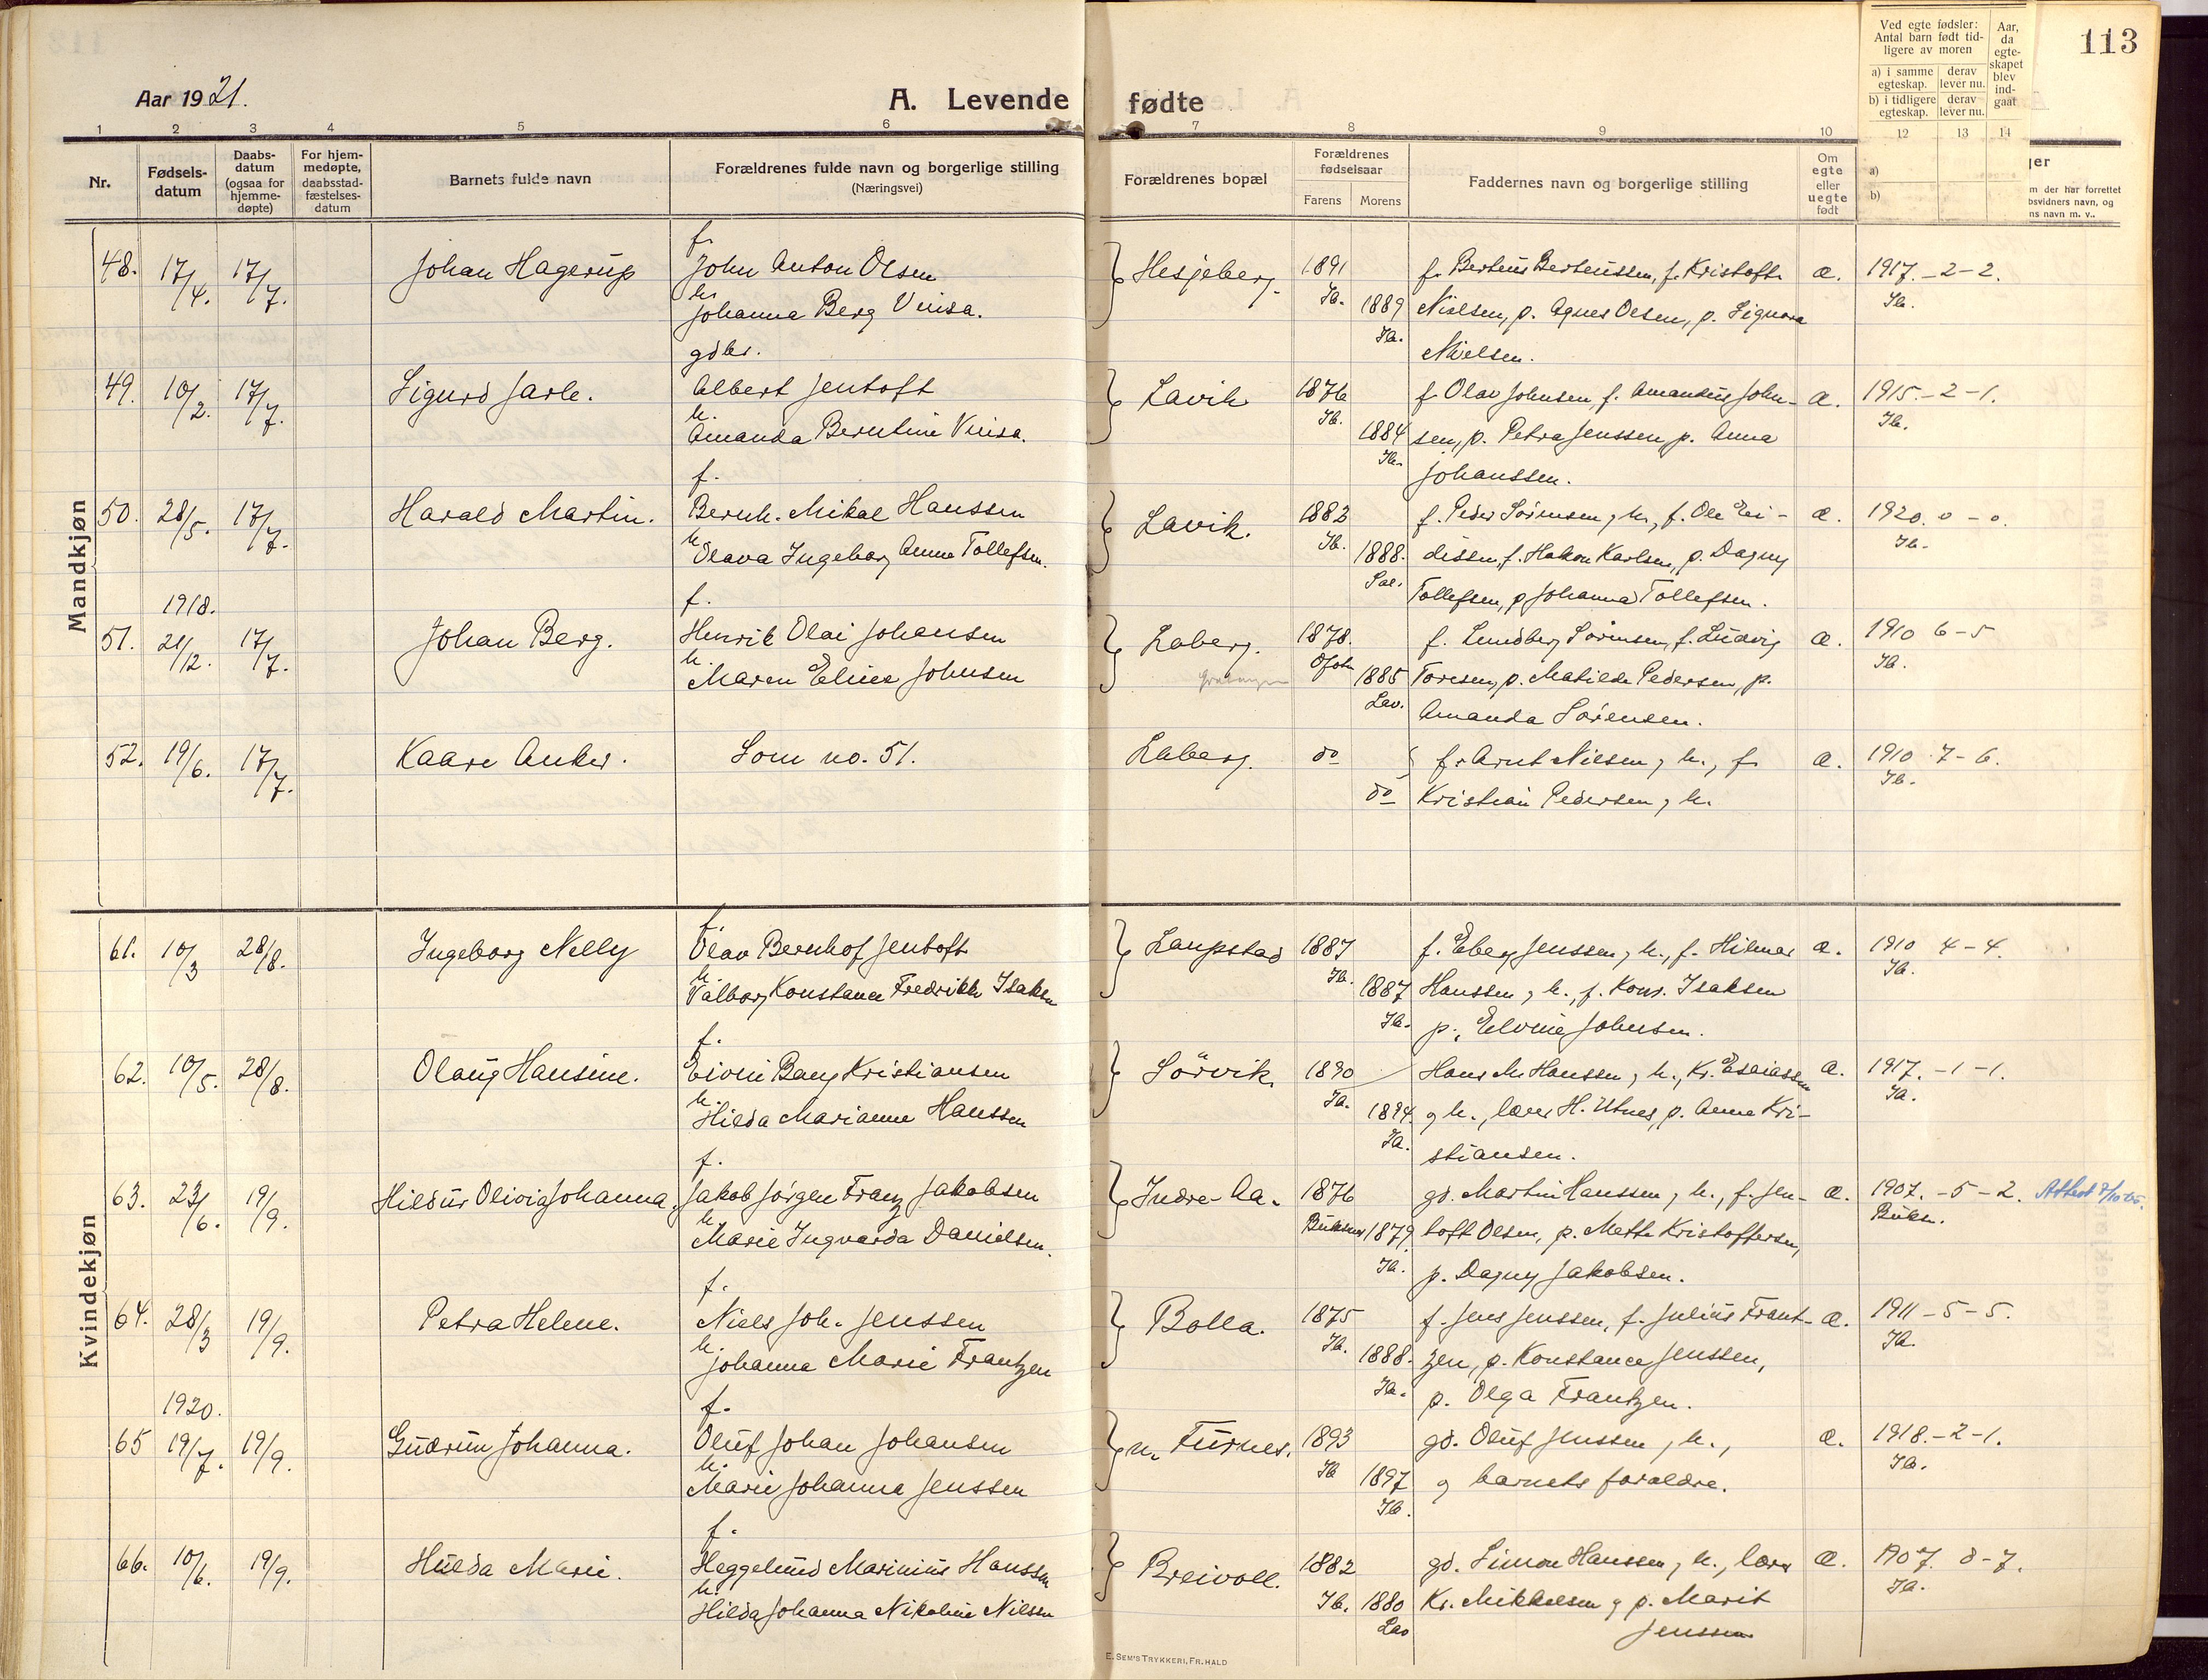 113
Aar 1921.
A. Levende fødte
Ved egte fødsler: Antal barn født tidligere av moren
Aar, da egteskapet blev indgaat
a) i samme egteskap. derav lever nu.
b) i tidligere egteskap. derav lever nu.
1 2 3 4 5 6 7 8 9 10 12 13 14
Nr.
Fødsels-datum
Daabs-datum (ogsaa for hjemme-døpte)
For hjem-medøpte, daabsstad-fæstelses-datum
Barnets fulde navn
Forældrenes fulde navn og borgerlige stilling (Næringsvei)
Forældrenes bopæl
Forældrenes fødselsaar
Farens Morens
Faddernes navn og borgerlige stilling
Om egte eller uegte født
a)
b)
ger
m der har forrettet
bsvidners navn, og
ns navn m. v..
Mandkjøn
f.
48. 17/4. 17/7. Johan Hagerup John Anton Olsen Hesjeberg. 1891 f. Berteus Berteussen, f. Kristoff. æ. 1917. - 2 - 2.
h. Ib. Ib.
Johanna Berg Vinsa. 1889 Nielsen, p. Agnes Olsen, p. Signora
Ib.
gdbr. Nielsen.
49. 10/2. 17/7. Sigurd Jarle. Albert Jentoft Lavik 1876 f. Olav Johnsen, f. Amandus John- æ. 1915. - 2 - 1.
h. Ib. Ib.
Amanda Berntine Vinsa. 1884 sen, p. Petra Jenssen, p. Anna
Ib.
f. Johanssen.
50. 28/5. 17/7. Harald Martin. Bernh. Mikal Hanssen Lavik. 1882 f. Peder Sörensen, h., f. Ole Eri- æ. 1920. 0 - 0.
h. Ib. Ib.
Olava Ingeborg Anna Tollefsen. 1888. dissen, f. Hakon Karlsen, p. Dagny
Sal.
1918. f. Tollefsen, p Johanna Tollefsen.
51. 21/12. 17/7. Johan Berg. Henrik Olai Johansen Laberg. 1878. f. Lundberg Sörensen, f. Ludvig æ. 1910 6 - 5
h. Ofoten Ib.
Maren Eline Johnsen 1885 Toresen, p. Matilde Pedersen, p.
Lav.
Amanda Sörensen.
52. 19/6. 17/7. Kaare Anker. Som no. 51. Laberg. do f. Arnt Nilsen, h., f. æ. 1910 7 - 6.
Ib.
do Kristian Pedersen, h.
Kvindekjøn
f.
61. 10/3 28/8. Ingeborg Nelly Olav Bernhof Jentoft Laupstad 1887 f. Eberg Jenssen, h., f. Hilmar æ. 1910 4 - 4.
h. Ib. Ib.
Valborg Konstance Fredrikke Isaksen 1887 Hanssen, h., f. Konr. Isaksen
Ib.
f. p. Elvine Johnsen.
62. 10/5. 28/8. Olaug Hansine. Eivin Bang Kristiansen Sörvik. 1890 Hans M. Hanssen, h., Kr. Esaiassen æ. 1917. - 1 - 1.
h. Ib. Ib.
Hilda Marianne Hanssen 1894. g h., lærer H. Utnes, p. Anna Kri-
Ib.
f. stiansen.
63. 23/6. 19/9. Hildur Olivia Johanna. Jakob Jörgen Franz Jakobsen Indre-Aa. 1876 gd. Martin Hanssen, h., f. Jen- æ. 1907. - 5 - 2. Attest
h. Buksnes Buksn.
Marie Ingvarda Danielsen. 1879 toft Olsen, p. Mette Kristoffersen,
Ib.
f. p. Dagny Jakobsen.
64. 28/3 19/9. Petra Helene. Niels Joh. Jenssen Bolla. 1875 f. Jens Jenssen, f. Julius Frant- æ. 1911 - 5 - 5.
h. Ib. Ib.
Johanna Marie Frantzen 1888. zen, p. Konstance Jenssen,
Ib.
1920. f. p. Olga Frantzen.
65 19/7. 19/9. Gudrun Johanna. Oluf Johan Johansen n. Furnes. 1893 gd. Oluf Jenssen, h., æ. 1918. - 2 - 1.
h. Ib Ib.
Marie Johanna Jenssen 1897 g barnets forældre.
Ib.
f.
66. 10/6. 19/9. Hulda Marie. Heggelund Marinius Hanssen Breivoll. 1882 gd. Simon Hanssen, h., lærer æ. 1907. 8 - 7.
h. Ib. Ib.
Hilda Johanna Nikoline Nilsen 1880 Kr. Mikkelsen g p. Marit
Lav Jenssen
E. SEM'S TRYKKERI, FR.HALD